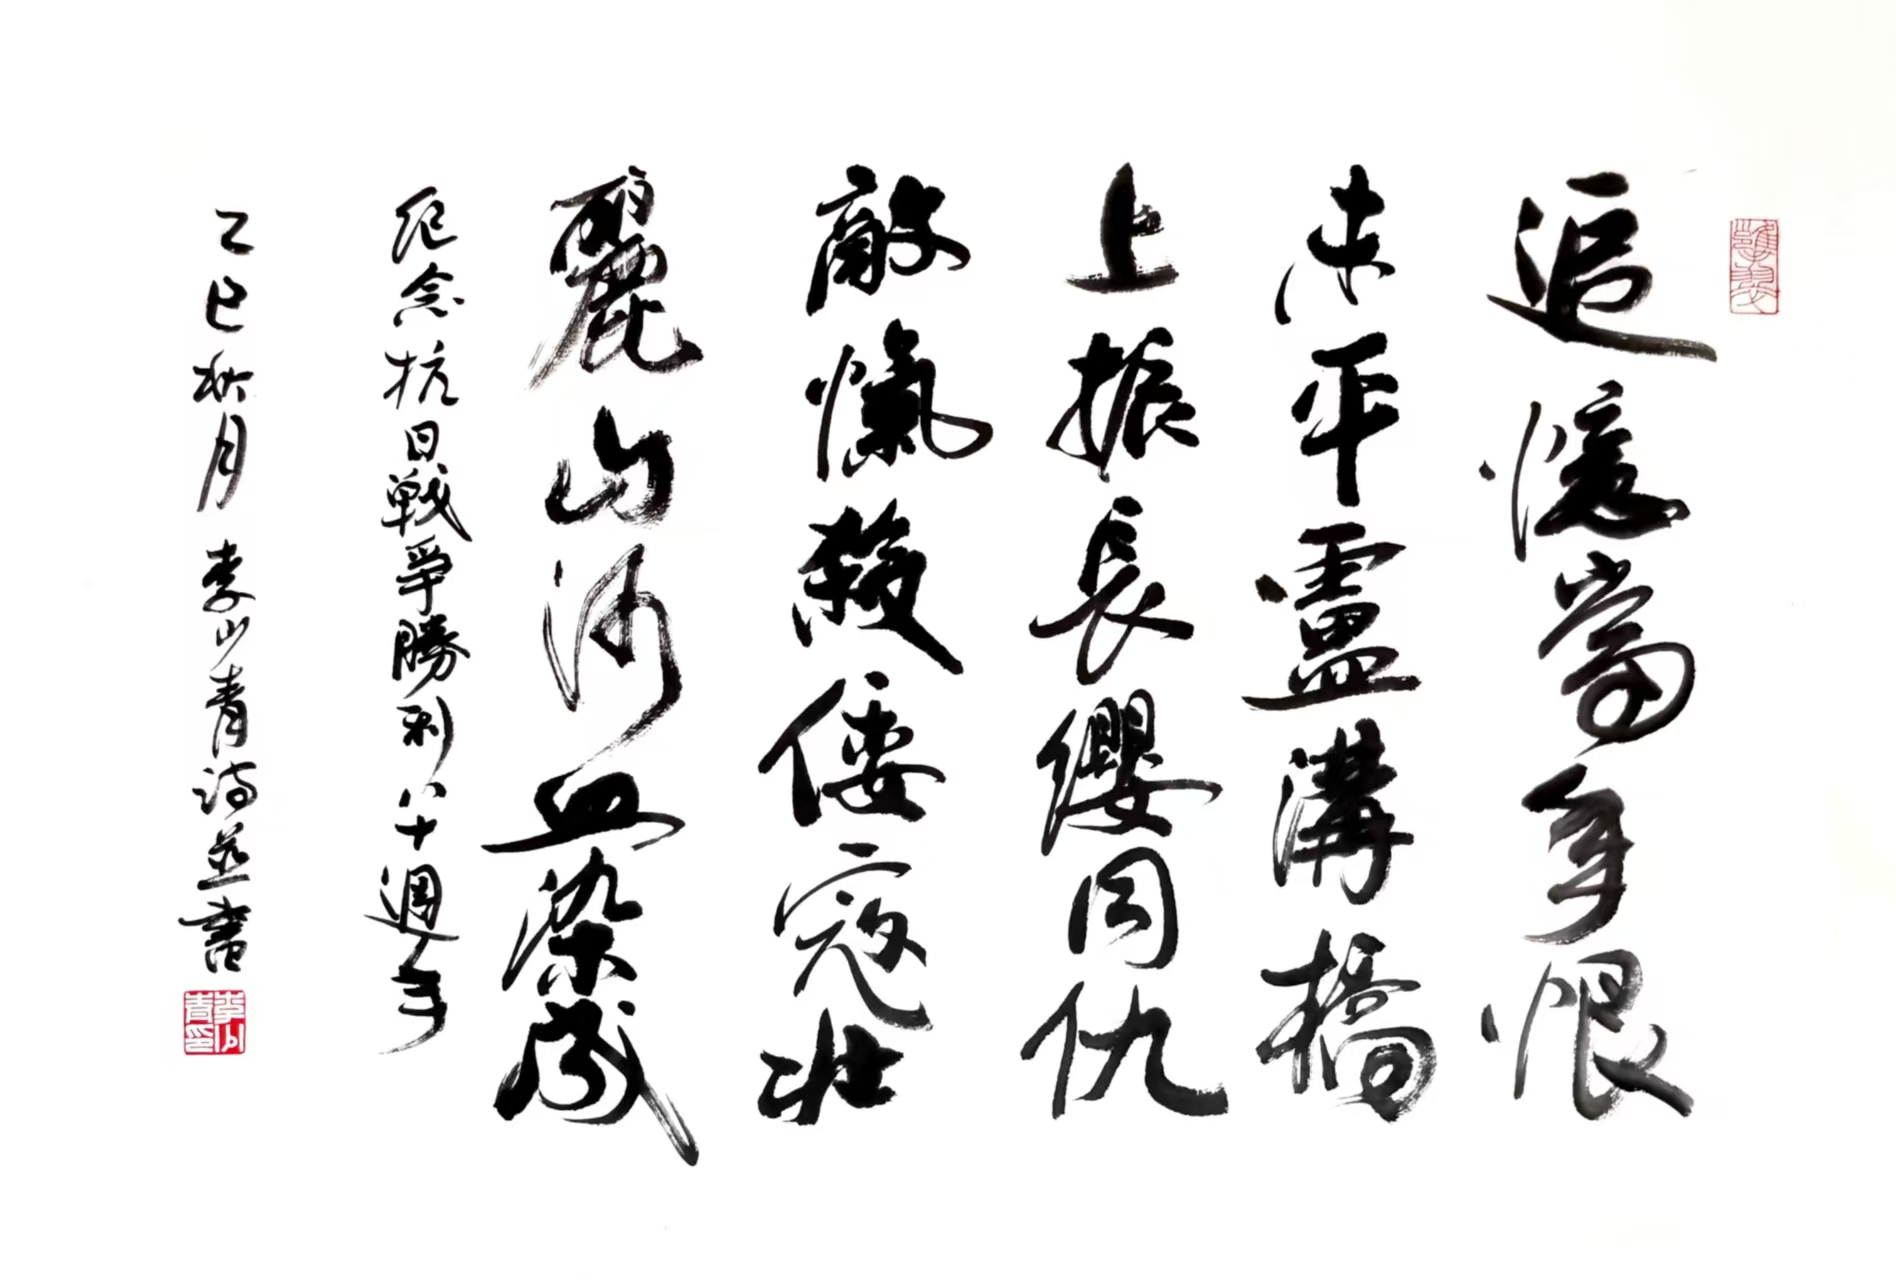 追憶當年恨
未平盧溝橋
上振長纓同仇
敵愾殺倭寇壯
麗山河血染成
紀念抗日戰爭勝利八十週年
乙巳秋月李山青詩並書
李山青印